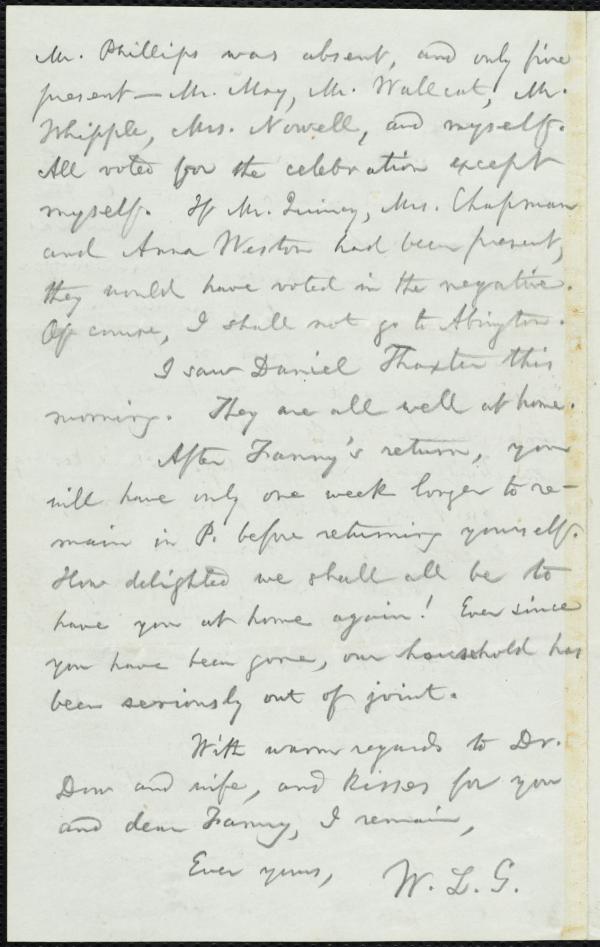 Mr. Phillips was absent, and only five
present — Mr. May, Mr. Wallcut, Mr.
Whipple, Mrs. Nowell, and myself.
All voted for the celebration except
myself. If Mr. Quincy, Mrs. Chapman
and Anna Weston had been present,
they would have voted in the negative.
Of course, I shall not go to Abington.
I saw Daniel Thaxter this
morning. They are all well at home.
After Fanny's return, you
will have only one week longer to re-
main in P. before returning yourself.
How delighted we shall all be to
have you at home again! Ever since
you have been gone, our household has
been seriously out of joint.
With warm regards to Dr.
Dow and wife, and kisses for you
and dear Fanny, I remain,
Ever yours,
W. L. G.